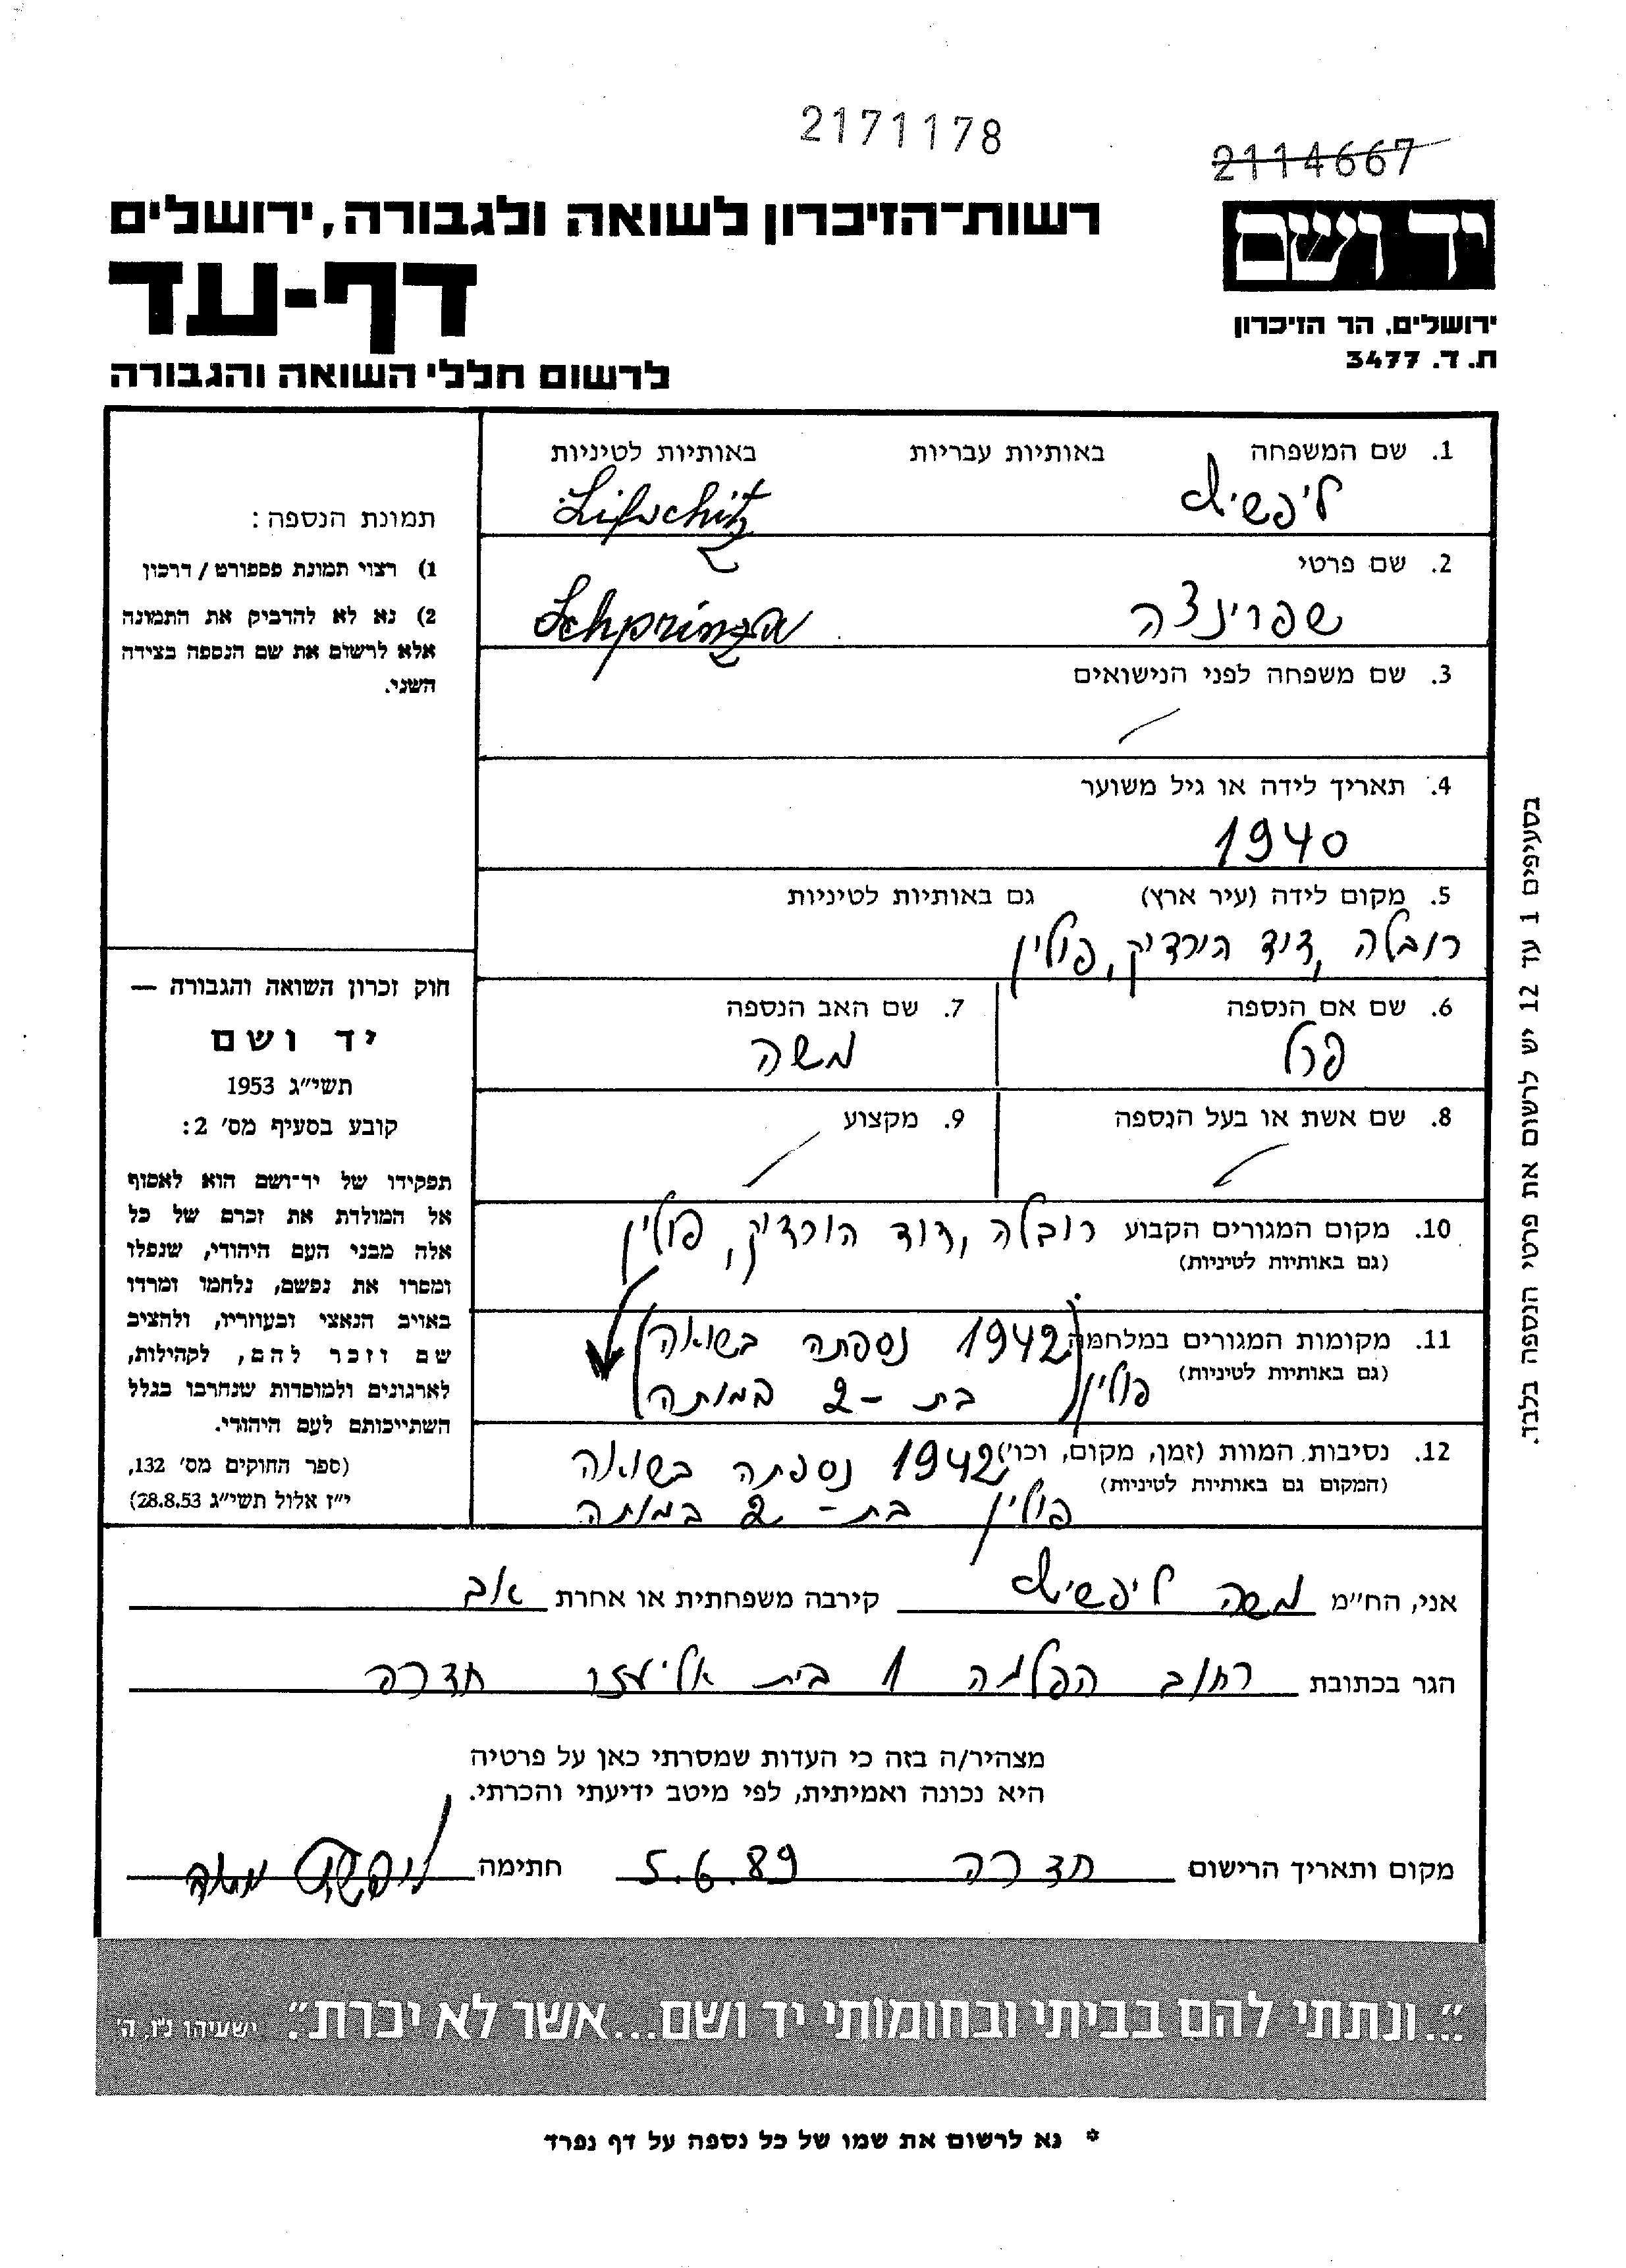 2171178
2114667
יד ושם
ירושלים, הר הזיכרון
ת.ד. 3477
רשות־הזיכרון לשואה ולגבורה, ירושלים
דף-עד
לרשום חללי השואה והגבורה
1. שם המשפחה באותיות עבריות באותיות לטיניות
ליפשיץ Lifschitz
2. שם פרטי
שפרינצה Schprinza
3. שם משפחה לפני הנישואים
4. תאריך לידה או גיל משוער
1940
5. מקום לידה (עיר ארץ) גם באותיות לטיניות
רובלה, דוד הורדוק, פולין
6. שם אם הנספה 7. שם האב הנספה
פרל משה
8. שם אשת או בעל הנספה 9. מקצוע
10. מקום המגורים הקבוע רובלה, דוד הורדוק, פולין
(גם באותיות לטיניות)
11. מקומות המגורים במלחמה 1942 נספתה בשואה
(גם באותיות לטיניות) פולין בת - 2 במותה
12. נסיבות המוות (זמן, מקום, וכו') 1942 נספתה בשואה
(המקום גם באותיות לטיניות) פולין בת - 2 במותה
תמונת הנספה:
1) רצוי תמונת פספורט / דרכון
2) נא לא להדביק את התמונה
אלא לרשום את שם הנספה בצידה
השני.
חוק זכרון השואה והגבורה —
יד ושם
תשי״ג 1953
קובע בסעיף מס׳ 2:
תפקידו של יד־ושם הוא לאסוף
אל המולדת את זכרם של כל
אלה מבני העם היהודי, שנפלו
ומסרו את נפשם, נלחמו ומרדו
באויב הנאצי ובעוזריו, ולהציב
שם וזכר להם, לקהילות,
לארגונים ולמוסדות שנחרבו בגלל
השתייכותם לעם היהודי.
(ספר החוקים מס׳ 132,
י״ז אלול תשי״ג 28.8.53)
בסעיפים 1 עד 12 יש לרשום את פרטי הנספה בלבד.
אני, הח״מ משה ליפשיץ קירבה משפחתית או אחרת אב
הגר בכתובת רחוב הפלמח 1 בית אליעזר חדרה
מצהיר/ה בזה כי העדות שמסרתי כאן על פרטיה
היא נכונה ואמיתית, לפי מיטב ידיעתי והכרתי.
מקום ותאריך הרישום חדרה 5.6.89 חתימה ליפשיץ משה
״...ונתתי להם בביתי ובחומותי יד ושם...אשר לא יכרת״. ישעיהו נ״ו, ה׳
* נא לרשום את שמו של כל נספה על דף נפרד